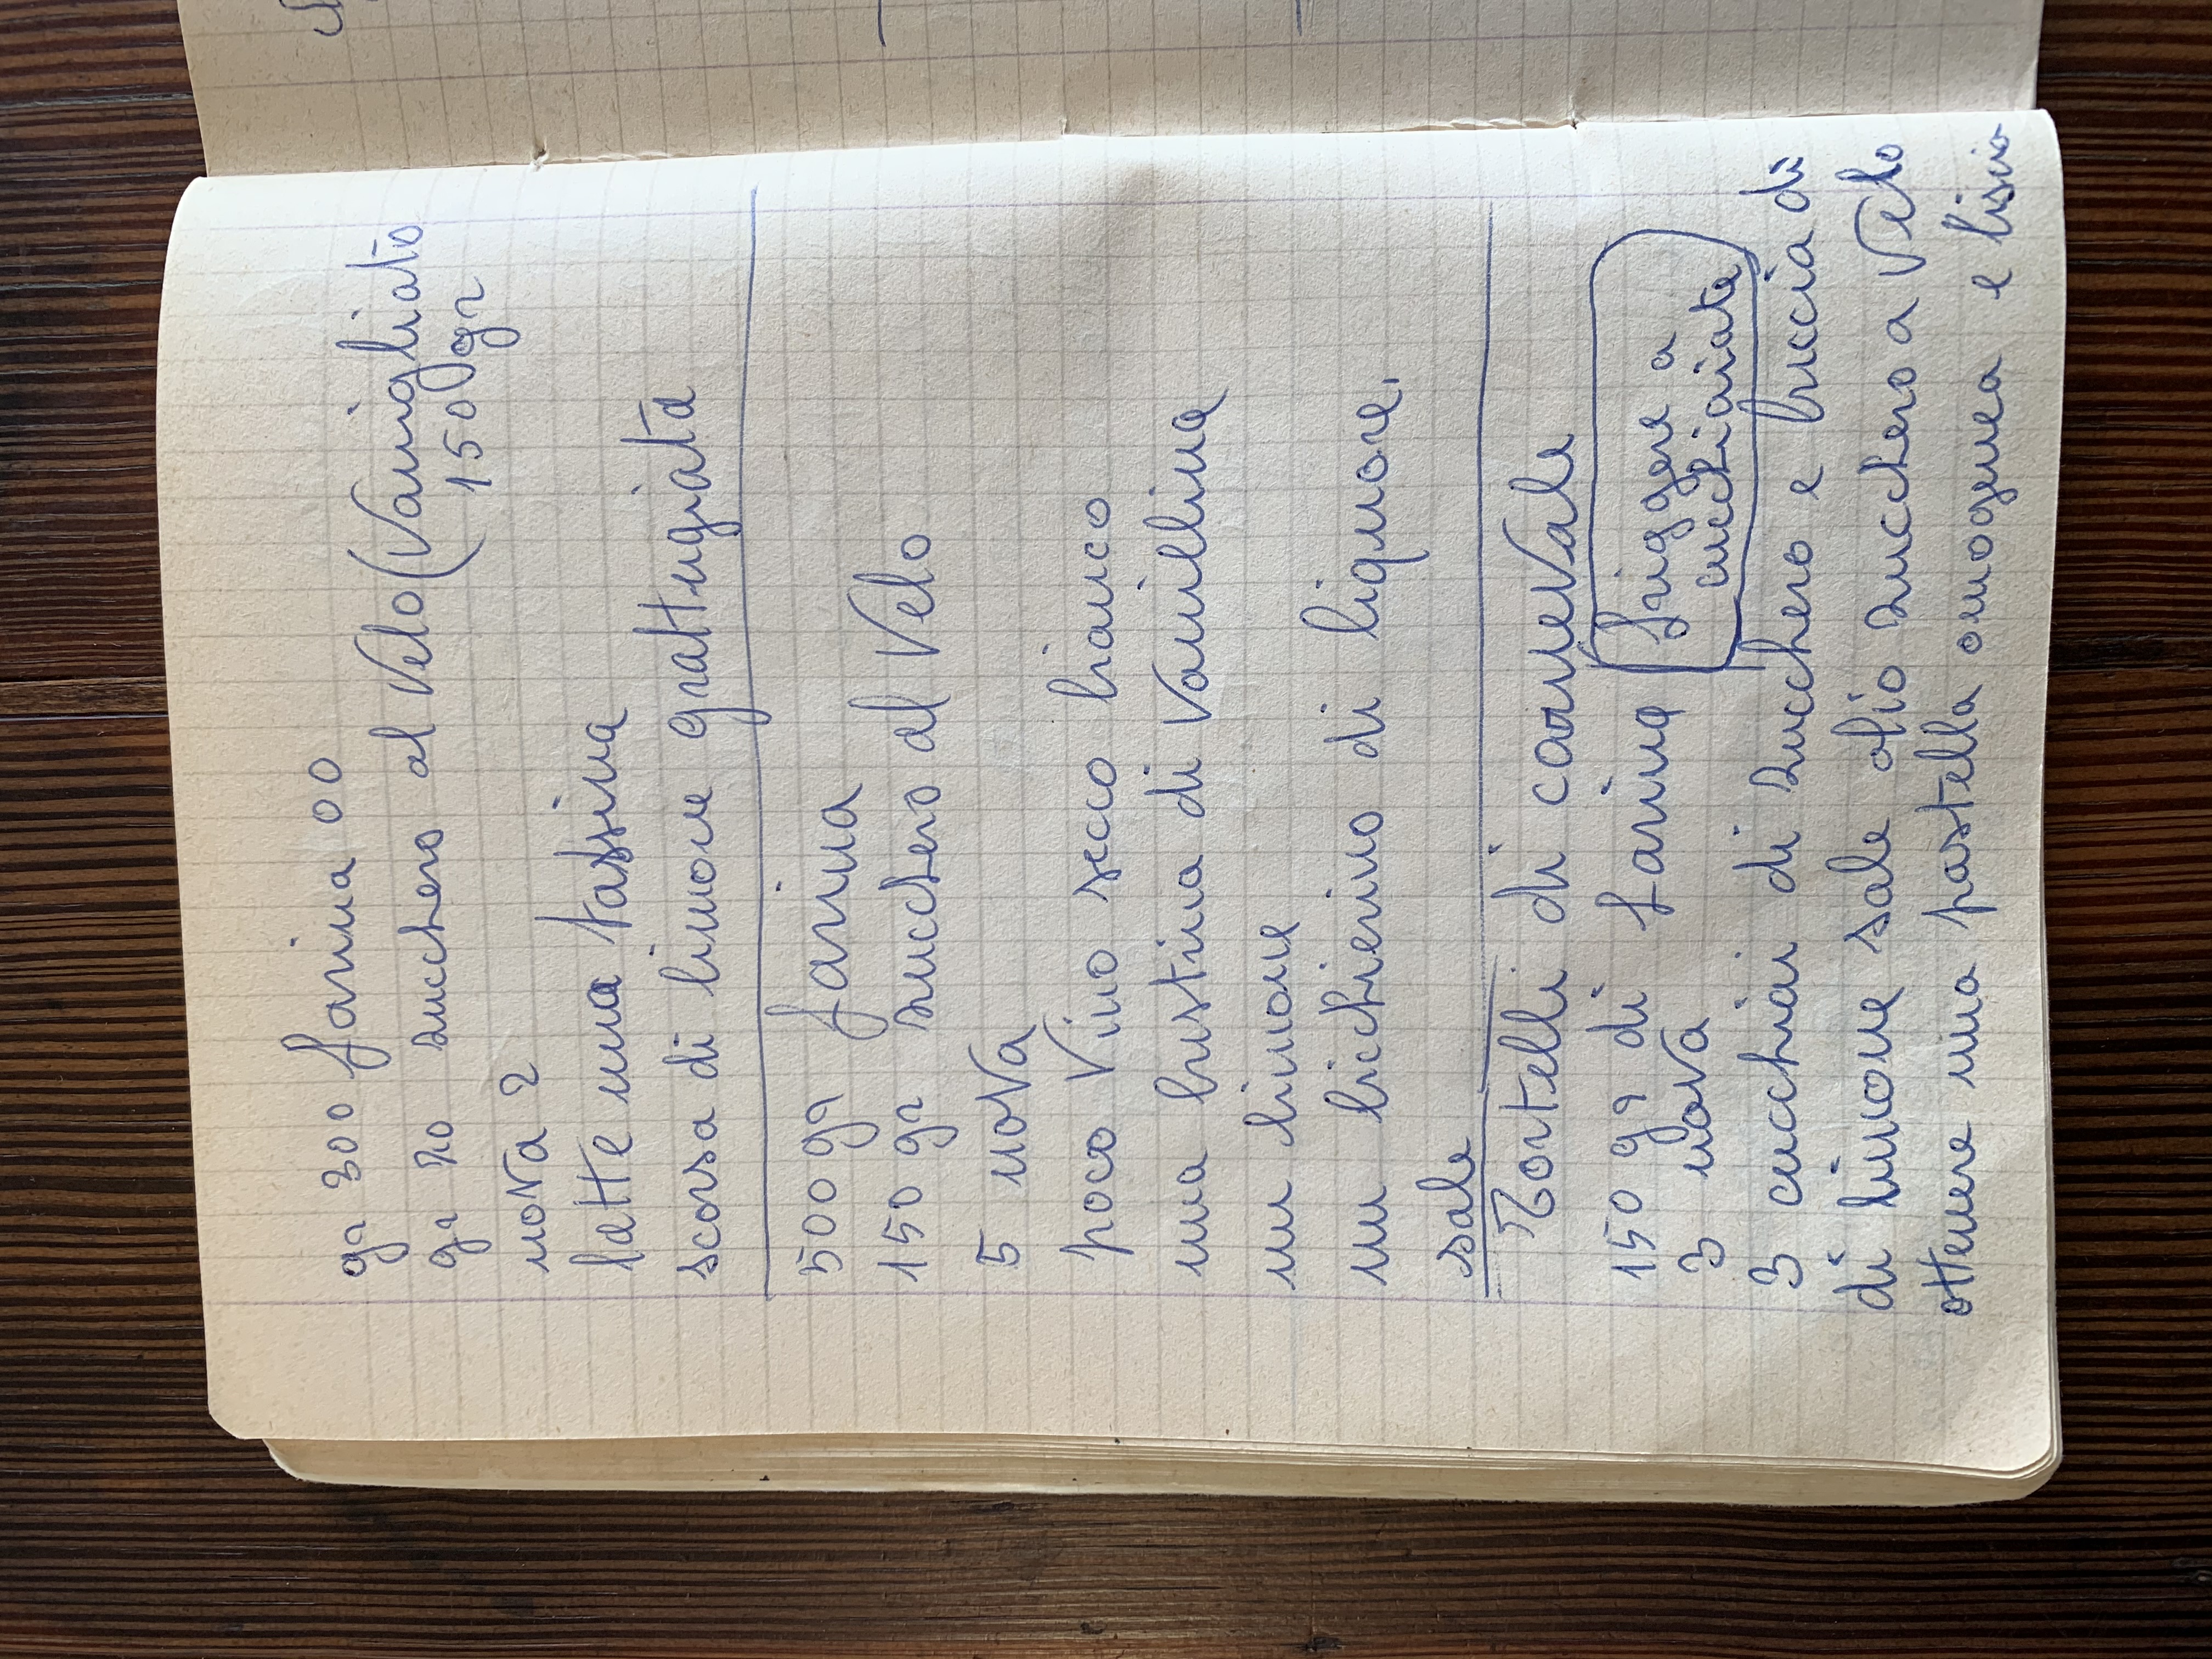 gr 300 farina 00
gr 20 zucchero al Velo (Vanigliato
150 gr
uova 2
latte una tassina
scorsa di limone grattugiata
500 gr farina
150 gr zucchero al Velo
5 uova
poco Vino secco bianco
una bustina di Vanillina
un limone
un bicchierino di liquore.
sale
Tortelli di carnevale
150 gr di farina
friggere a
cucchiaiate
3 uova
3 cucchiai di zucchero e buccia di
di limone sale olio zucchero a Velo
ottenere una pastella omogenea e liscia